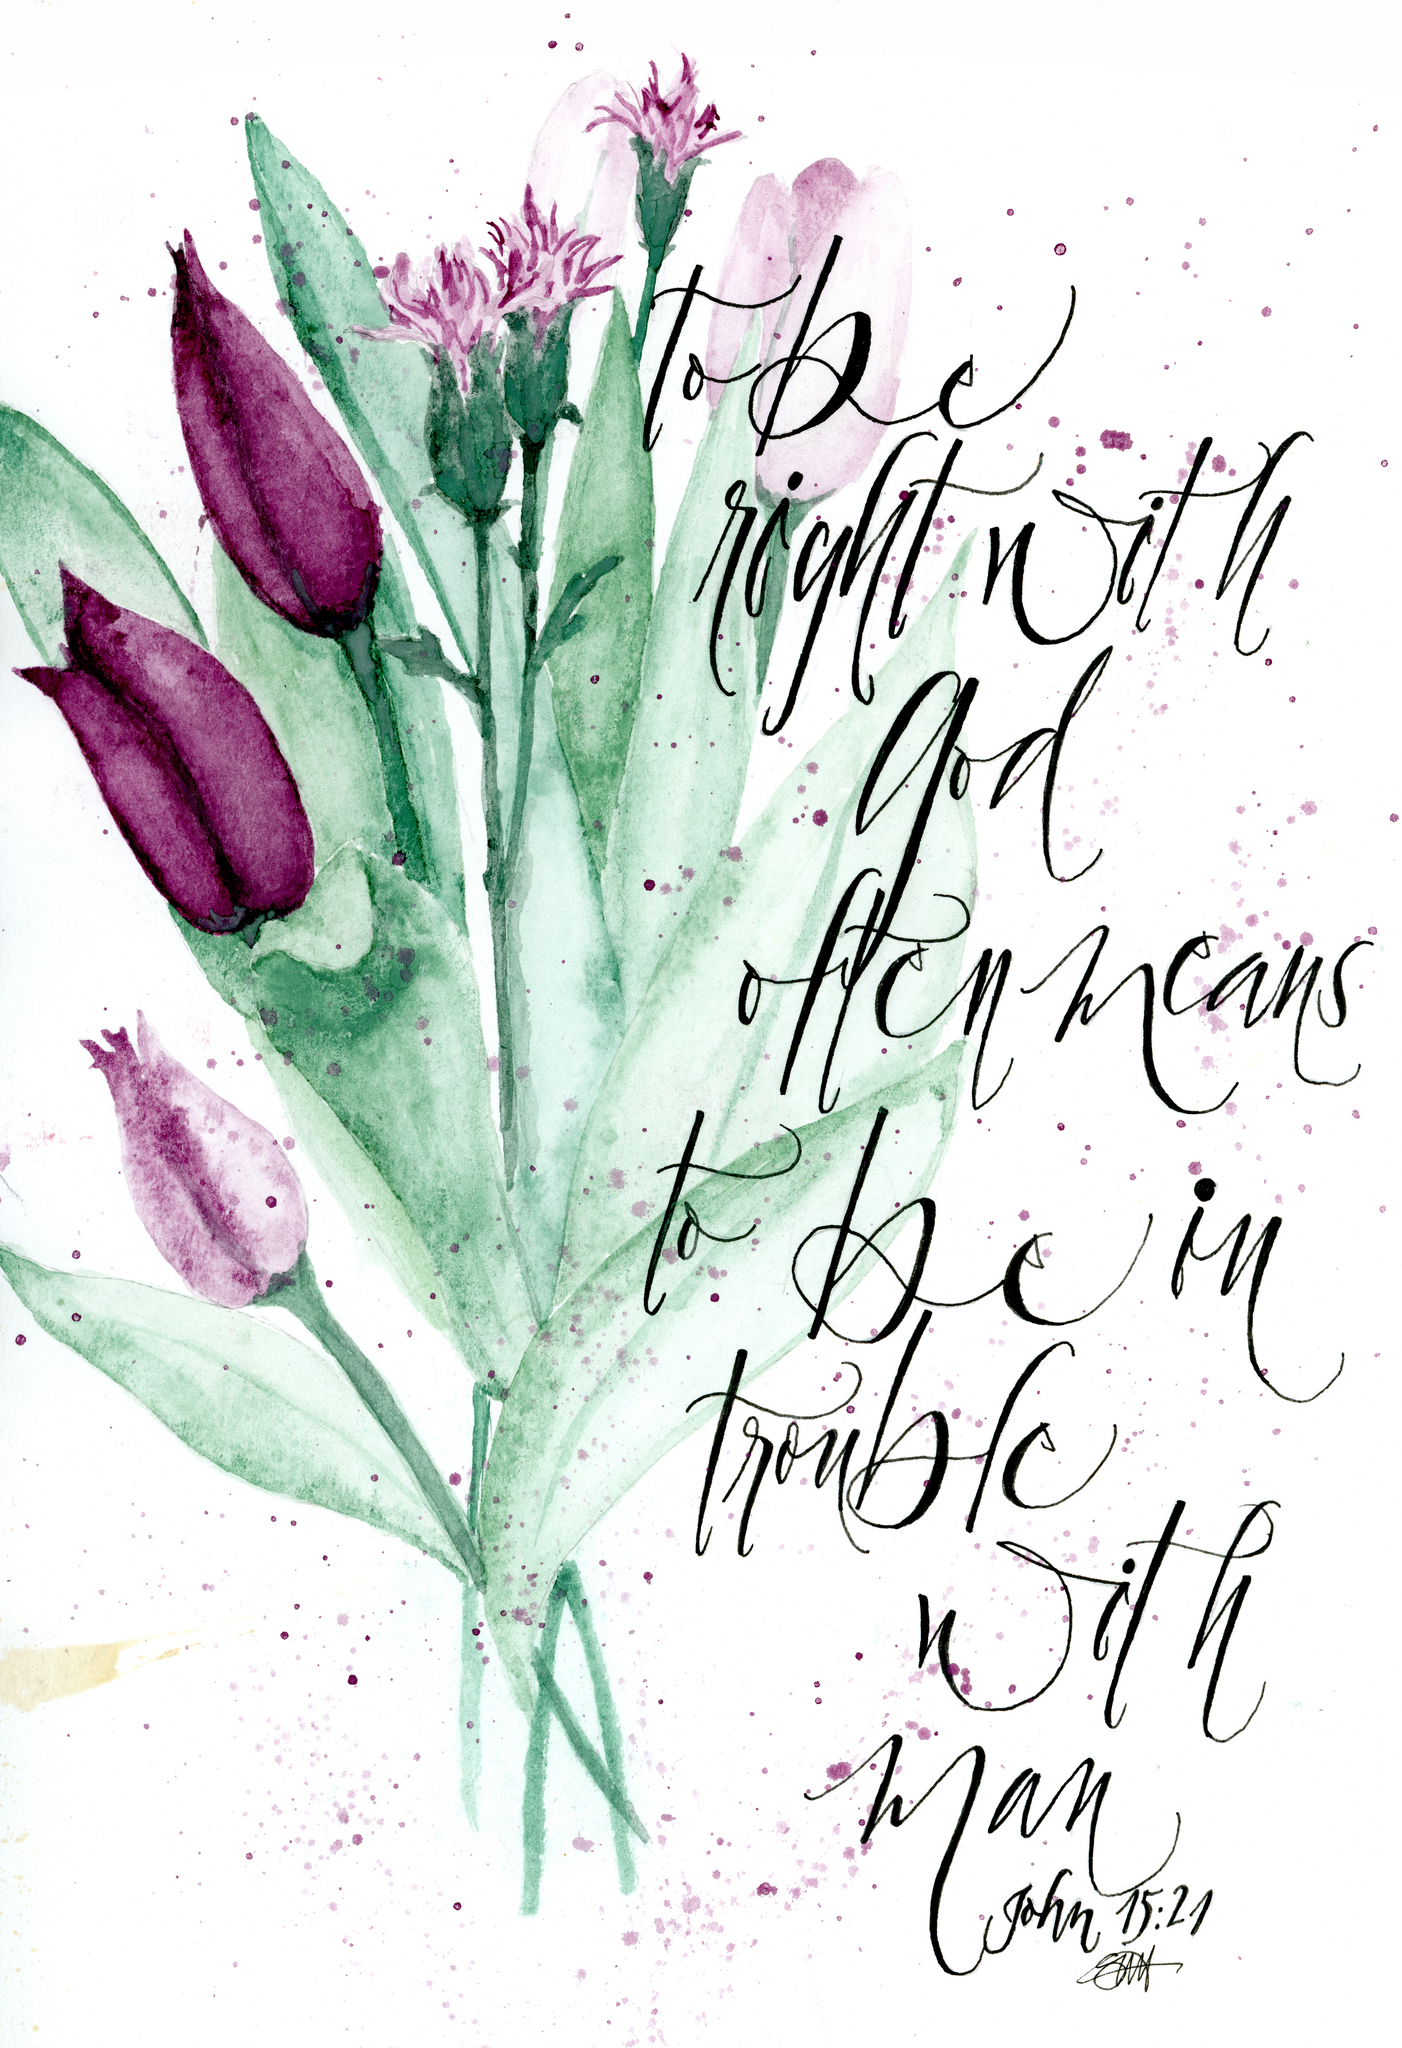 to be
right with
God
often means
to be in
trouble
with
man
John 15:21